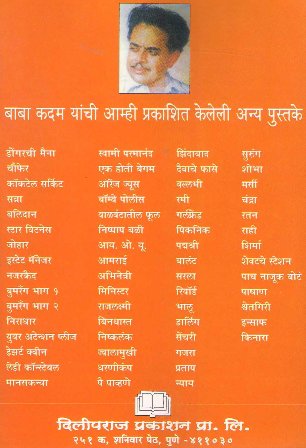 बाबा कदम यांची आम्ही प्रकाशित केलेली अन्य पुस्तके
डोंगरची मैना स्वामी परमानंद झिंदाबाद सुरुंग
चौफेर एक होती बेगम देवाचे फासे शोभा
कॉकटेल सर्किट ऑरेंज ज्यूस वल्लभी मर्सी
सत्रा बॉम्बे पोलीस रमी चंद्रा
बलिदान वाळवंटातील फूल गर्लफ्रेंड रतन
स्टार विटनेस निष्पाप बळी पिकनिक राही
जोहार आय. ओ. यू. पद्मश्री शिर्मा
इस्टेट मॅनेजर आमराई चालंट शेवटचे स्टेशन
नजरकैद अभिनेत्री सरला पाच नाजूक बोटं
बुमरँग भाग १ मिनिस्टर रिवॉर्ड पाषाण
बुमरँग भाग २ राजलक्ष्मी भालू क्षेतगिरी
निराधार बिनधास्त डार्लिंग इन्साफ
युवर अटेन्शन प्लीज निष्कलंक सेंचरी किनारा
डेझर्ट क्वीन ज्वालामुखी गजरा
लेडी कॉन्स्टेबल धरणीकंप प्रताप
मानसकन्या पैं पाव्हणे न्याय
दिलीपराज प्रकाशन प्रा. लि.
२५१ क, शनिवार पेठ, पुणे - ४११०३०